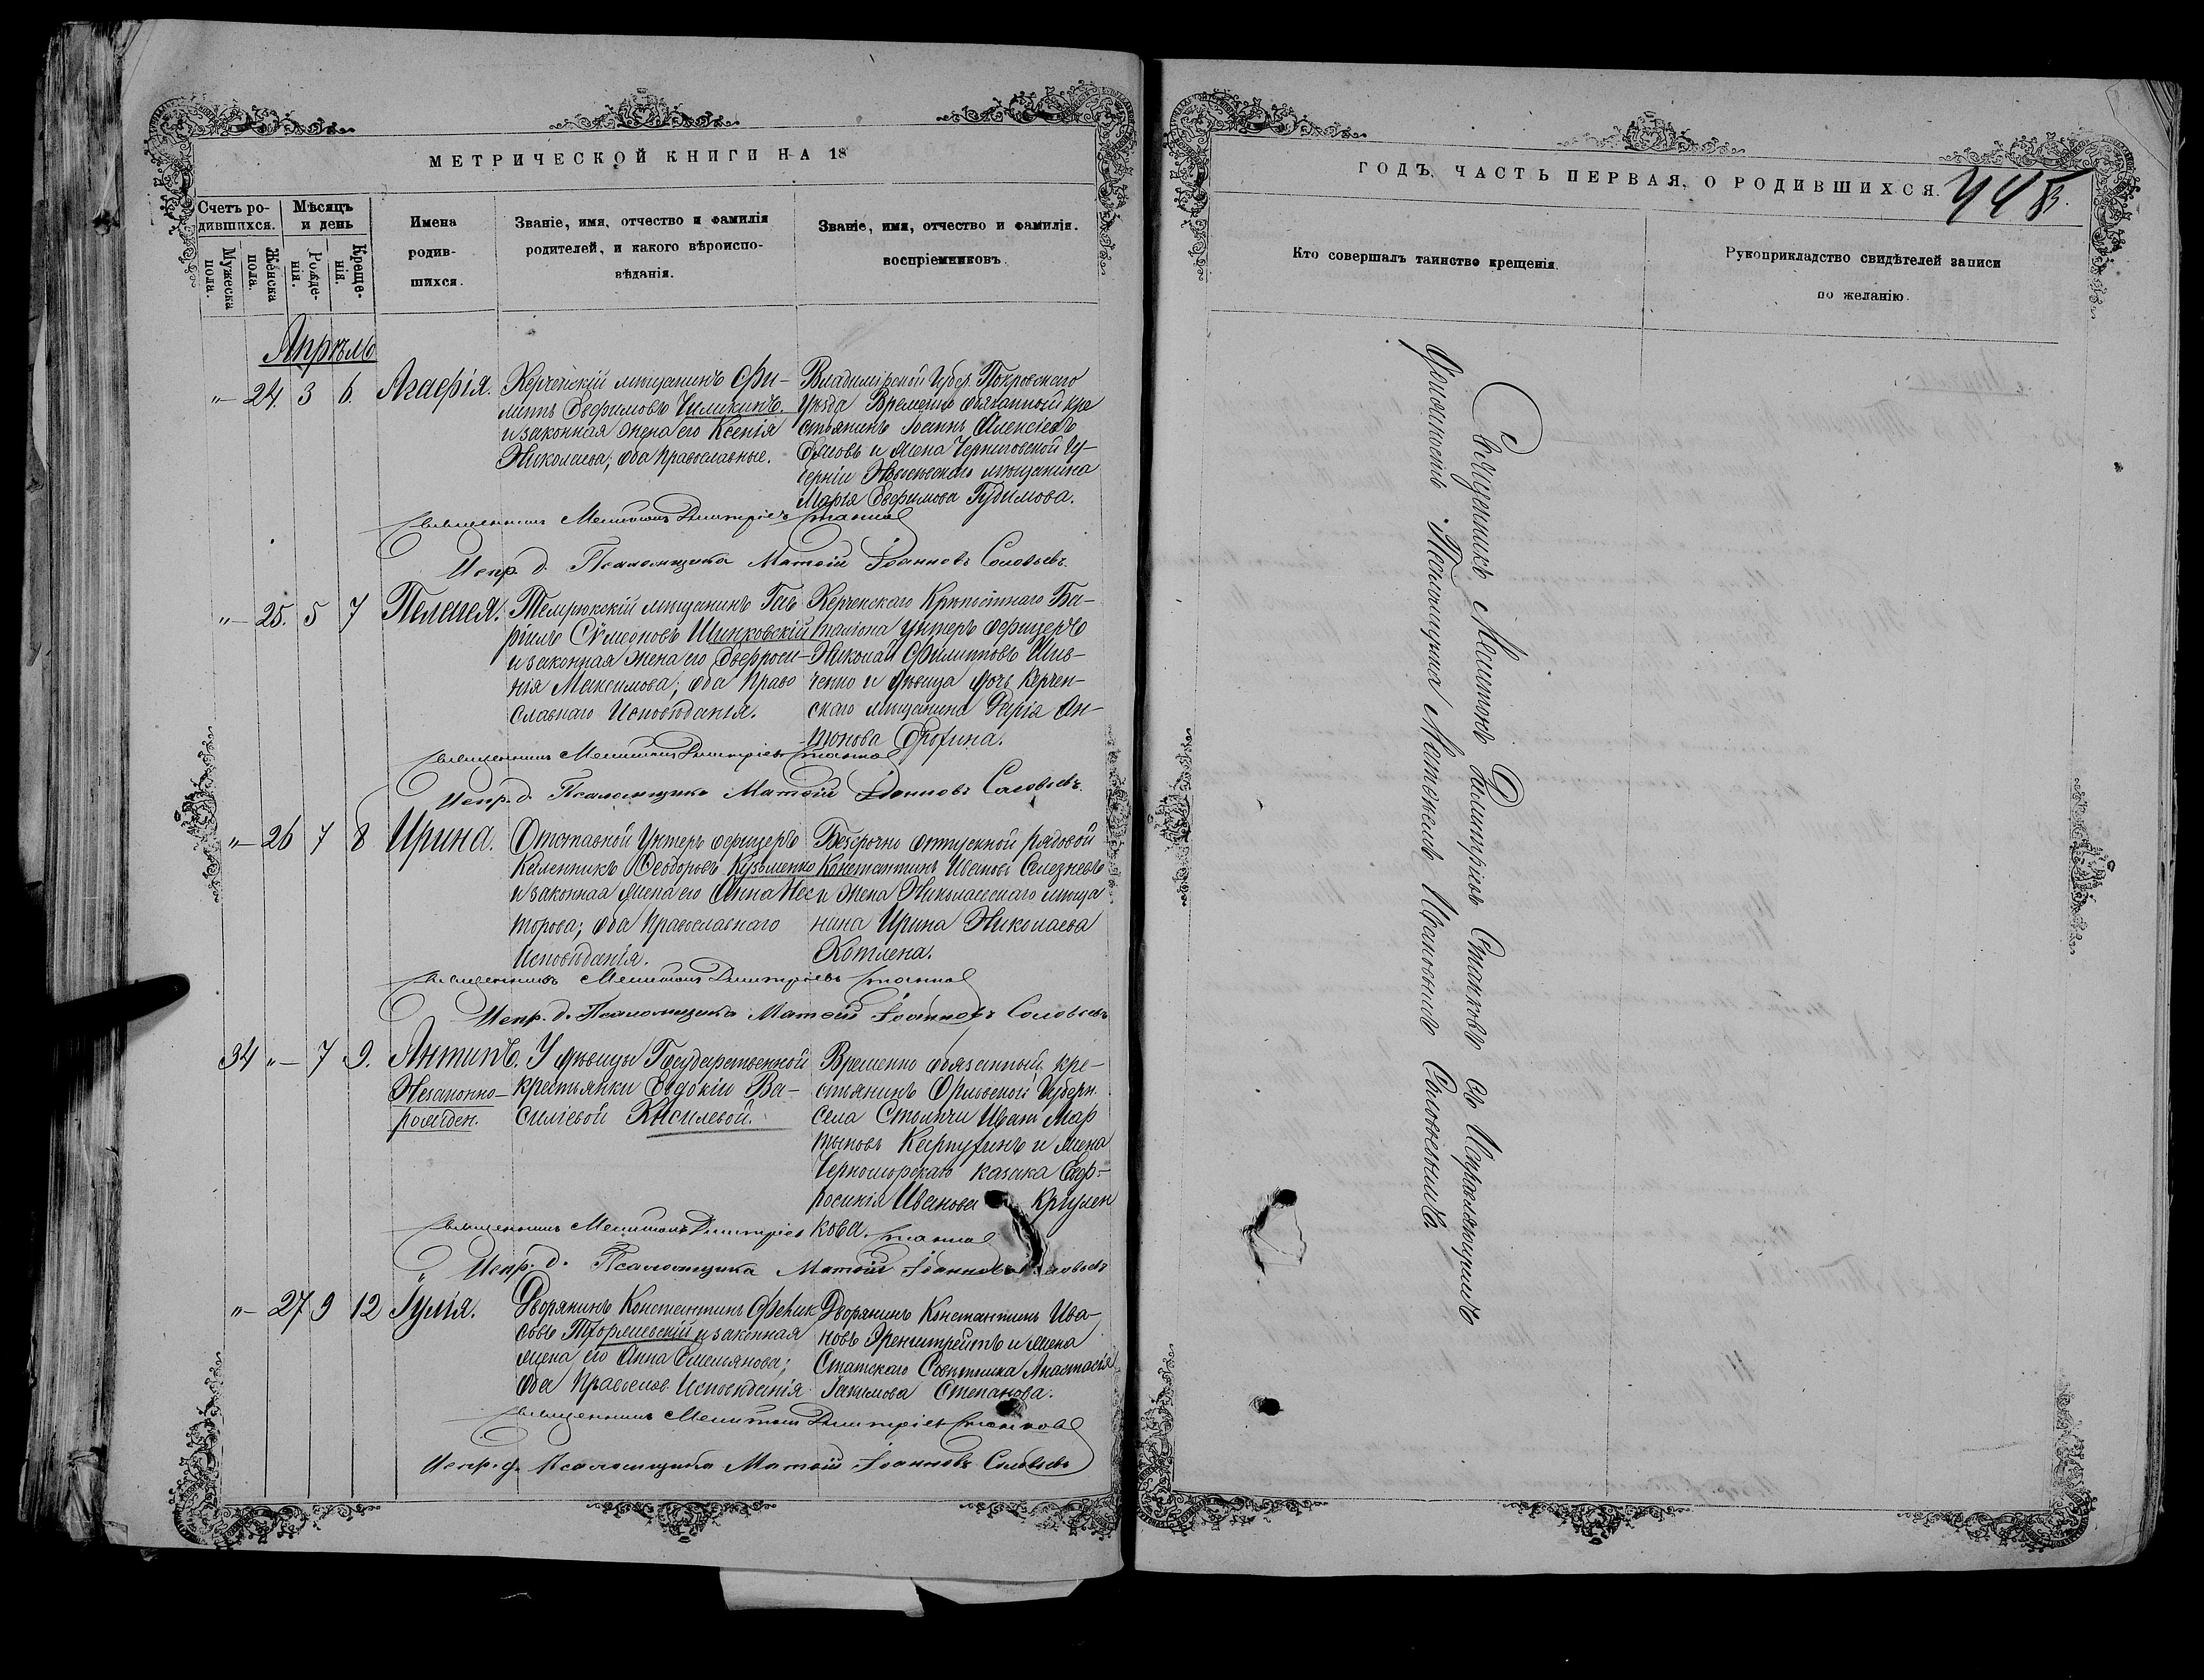 МЕТРИЧЕСКОЙ КНИГИ НА 18
Счетъ ро-
дившихся.
Мѣсяцъ
и день
Мужеска
пола.
Женска
пола.
Рожде-
нія.
Креще-
нія.
Имена
родив-
шихся.
Званіе, имя, отчество и фамилія
родителей, и какого вѣроиспо-
вѣданія.
Званіе, имя, отчество и фамилія.
воспріемниковъ.
Апрѣль
"- 24. 3 6. Агафія.
Керченскій мѣщанинъ Фи-
липъ Евфимовъ Чиликинъ.
и законная жена его Ксенія
Николаева; оба православные.
Владимірской Губер. Покровскаго
Уѣзда Временно обязанный кре
стьянинъ Іоаннъ Алексіевъ
и жена Черниговской Гу-
берніи мѣщанина
Марья Евфимова Гудимова.
Священникъ Мелитонъ Димитріевъ Станковъ
Испр. д. Псаломщика Матѳій Іоанновъ Соловьевъ.
"- 25. 5 7 Пелагея.
Темрюкскій мѣщанинъ Гав
ріилъ Сѵмеоновъ Шинковскій
и законная жена его Евфроси-
нія Максимова; оба Право
славнаго Исповѣданія.
Керченскаго Крѣпостнаго Ба-
таліона Унтеръ Офицеръ
Николай Филипповъ Шев-
ченко и дѣвица дочь Керчен-
скаго мѣщанина Дарія Ан-
тонова
Священникъ Мелитонъ Димитріевъ Станковъ
Испр. д. Псаломщика Матѳій Іоанновъ Соловьевъ.
"- 26 7 8 Ирина.
Отставной Унтеръ офицеръ
Келенникъ Ѳеодоровъ Кузьменко
и законная жена его Анна Нес
торова; оба Православнаго
Исповѣданія.
Безсрочно отпускной рядовой
Константинъ Ивановъ Селезневъ
и жена Николаевскаго мѣща
нина Ирина Николаева
Котлена.
Священникъ Мелитонъ Димитріевъ Станковъ
Испр. д. Псаломщика Матѳій Іоанновъ Соловьевъ
34 "- 7 9. Антипъ.
Незаконно-
рожден.
У дѣвицы Государственной
крестьянки Евдокіи Ва-
силіевой Киселевой.
Временно обязанный кре-
стьянинъ Орловской Губерн.
села Столпчи Иванъ Мар
тыновъ Карпухинъ и жена
Черноморскаго казака Евф-
росинія Иванова Кр
кова.
Священникъ Мелитонъ Димитріевъ Станковъ
Испр. д. Псаломщика Матѳій Іоанновъ Соловьевъ
"- 27 9 12 Іулія.
Дворянинъ Константинъ Феликс
овъ и законная
жена его Анна Емельянова;
оба Православ. Исповѣданія
Дворянинъ Константинъ Ива-
новъ Эренштрейтъ и жена
Статскаго Совѣтника Анастасія
Іакимова Степанова.
Священникъ Мелитонъ Димитріевъ Станковъ
Испр. д. Псаломщика Матѳій Іоанновъ Соловьевъ
ГОДЪ, ЧАСТЬ ПЕРВАЯ, О РОДИВШИХСЯ.
445.
Кто совершалъ таинство крещенія.
Рукоприкладство свидѣтелей записи
по желанію.
Священникъ Мелитонъ Димитріевъ Станковъ съ Исправляющимъ
должность Псаломщика Матѳеемъ Ивановымъ Соловьевымъ